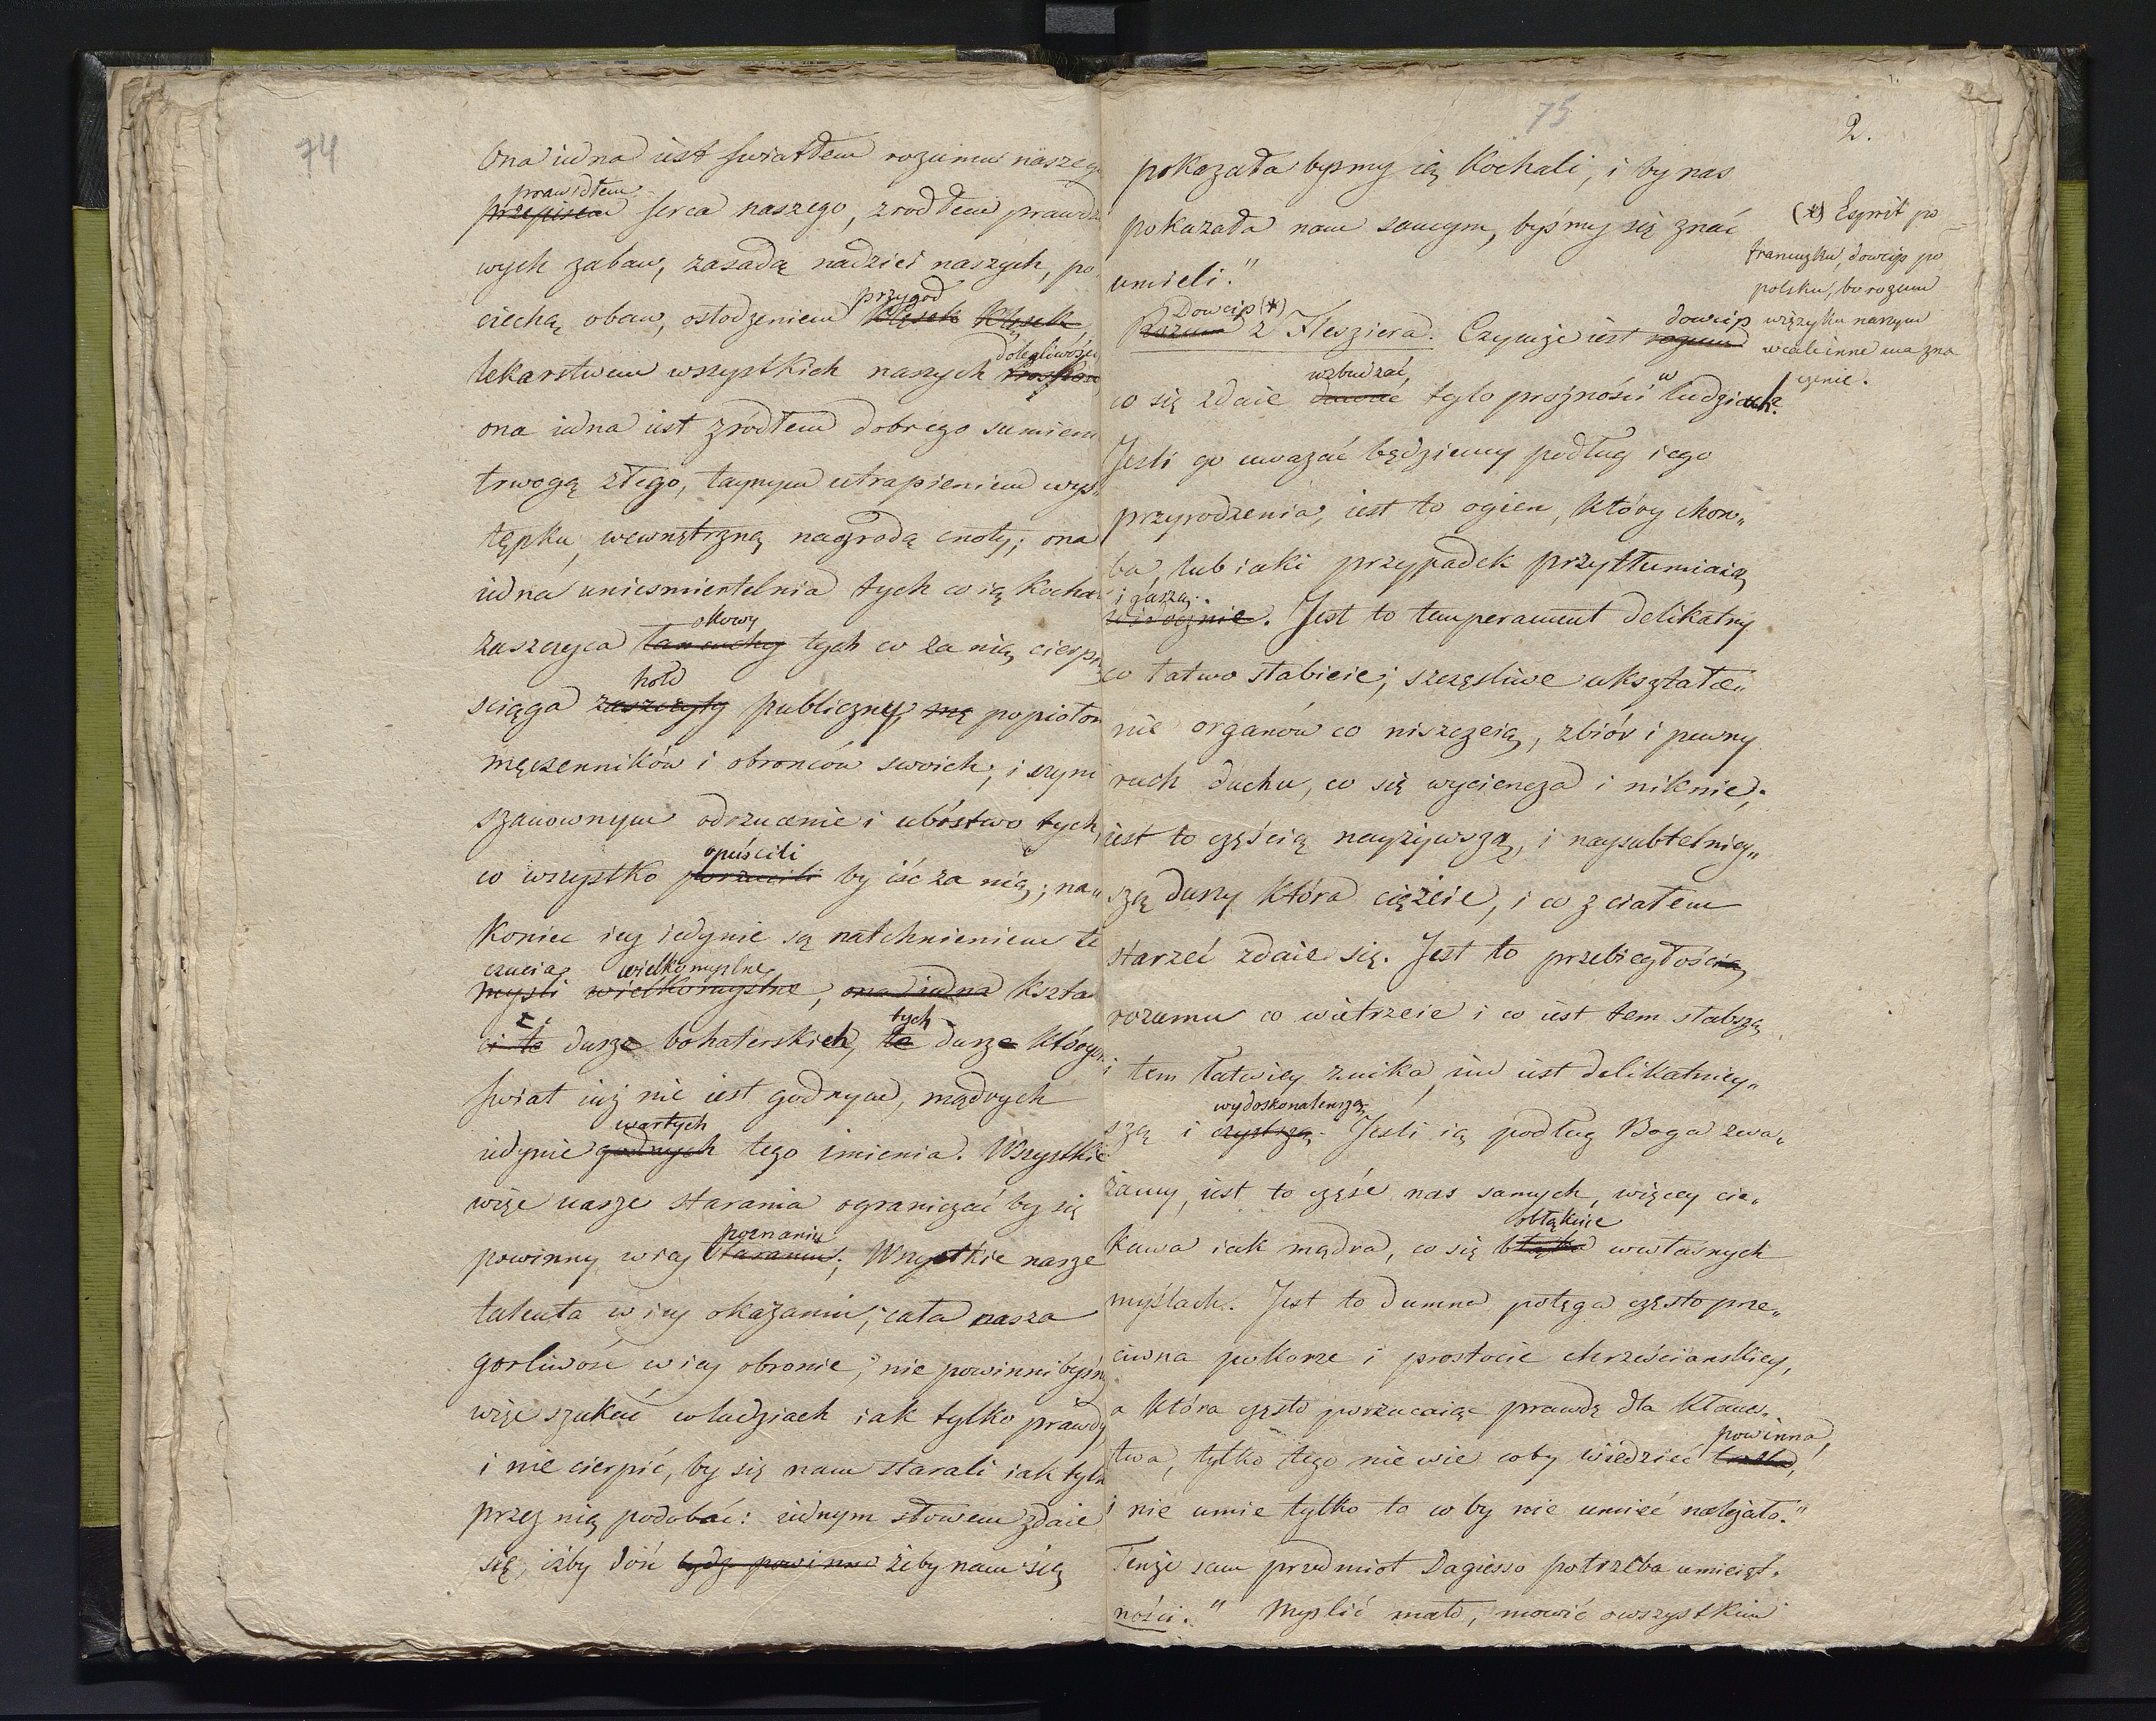 74
Ona iedna iest swiatłem rozumu naszego
prawidłem
przepisem serca naszego, zrodłem prawdzi
wych zabaw, zasadą nadziei naszych, po
przygod
ciechą obaw, osłodzeniem klęsek klęsek,
dolegliwości
lekarstwem wszystkich naszych trosków
ona iedna iest zródłem dobrego sumieni
trwogą złego, taynym utrapieniem wys„
tępku, wewnętrzną nagrodą cnoty; ona
iedna uniesmiertelnia tych co ią kocha
okowy
zaszczyca łancuchy tych co za nią cierpi
hołd
sciąga zaszczyty publiczny, popiołom
męczenników i obronców swoich; i czyni
szanownym odrzucenie i ubóstwo tych,
opuścili
co wszystko porzucili by iść za nią; na„
koniec iey iedynie są natchnieniem te
czucia wielkomyslne
mysli wielkomyslne, ona iedna kształ
tych
ci te dusze bohaterskich, te dusze którym
swiat iuż nie iest godnym, mądrych
wartych
iedynie godnych tego imienia. Wszystkie
więc nasze starania ograniczać by się
poznaniu
powinny w iey staraniu; Wszystkie nasze
talenta w iey okazaniu; cała nasza
gorliwość w iey obronie; nie powinni byśmy
więc szukać w ludziach iak tylko prawdy
i nie cierpić, by się nam starali iak tylko
przez nią podobać: iednym słowem zdaie
się, iżby dość bydź powinno żeby nam się
75
2.
pokazała byśmy ią kochali, i by nas
pokazała nam samym, byśmy się znać
umieli."
Dowcip (*)
Rozum z Flesziera. Czymże iest rozum
dowcip
wzbudzać w
co się zdaie dawać tyle prożności ludziach?
(*) Esprit po
francuzku, dowcip po
polsku, bo rozum
w ięzyku naszym
wcale inne ma zna
czenie.
Jesli go uważać będziemy podług iego
przyrodzenia, iest to ogien, który choro„
ba, lub iaki przypadek przytłumiaią
i gaszą.
widocznie. Jest to temperament delikatny
co łatwo słabieie; szczęsliwe ukształce„
nie organów co niszczeią, zbiór i pewny
ruch ducha, co się wyciencza i niknie;
iest to częścią nayżywszą, i naysubtelniey„
szą duszy która ciężeie, i co z ciałem
starzeć zdaie się. Jest to przebiegłością
rozumu co wietrzeie i co iest tem słabszą
i tem łatwiey znika, im iest delikatniey„
wydoskonalenszą
szą i czystszą. Jesli ią podług Boga zwa„
żamy, iest to część nas samych, więcey cie„
obłąkuie
kawa iak mądra, co się błąka w własnych
myślach. Jest to dumna potęga często prze„
ciwna pokorze i prostocie chrześcianskiey,
a która często porzucaiąc prawdę dla kłams„
powinna,
twa, tylko tego nie wie coby wiedzieć trzeba,
i nie umie tylko to co by nie umieć należało."
Tenże sam przedmiot Dagiesso potrzeba umieięt„
ności. " Myślić mało, mowić o wszystkim